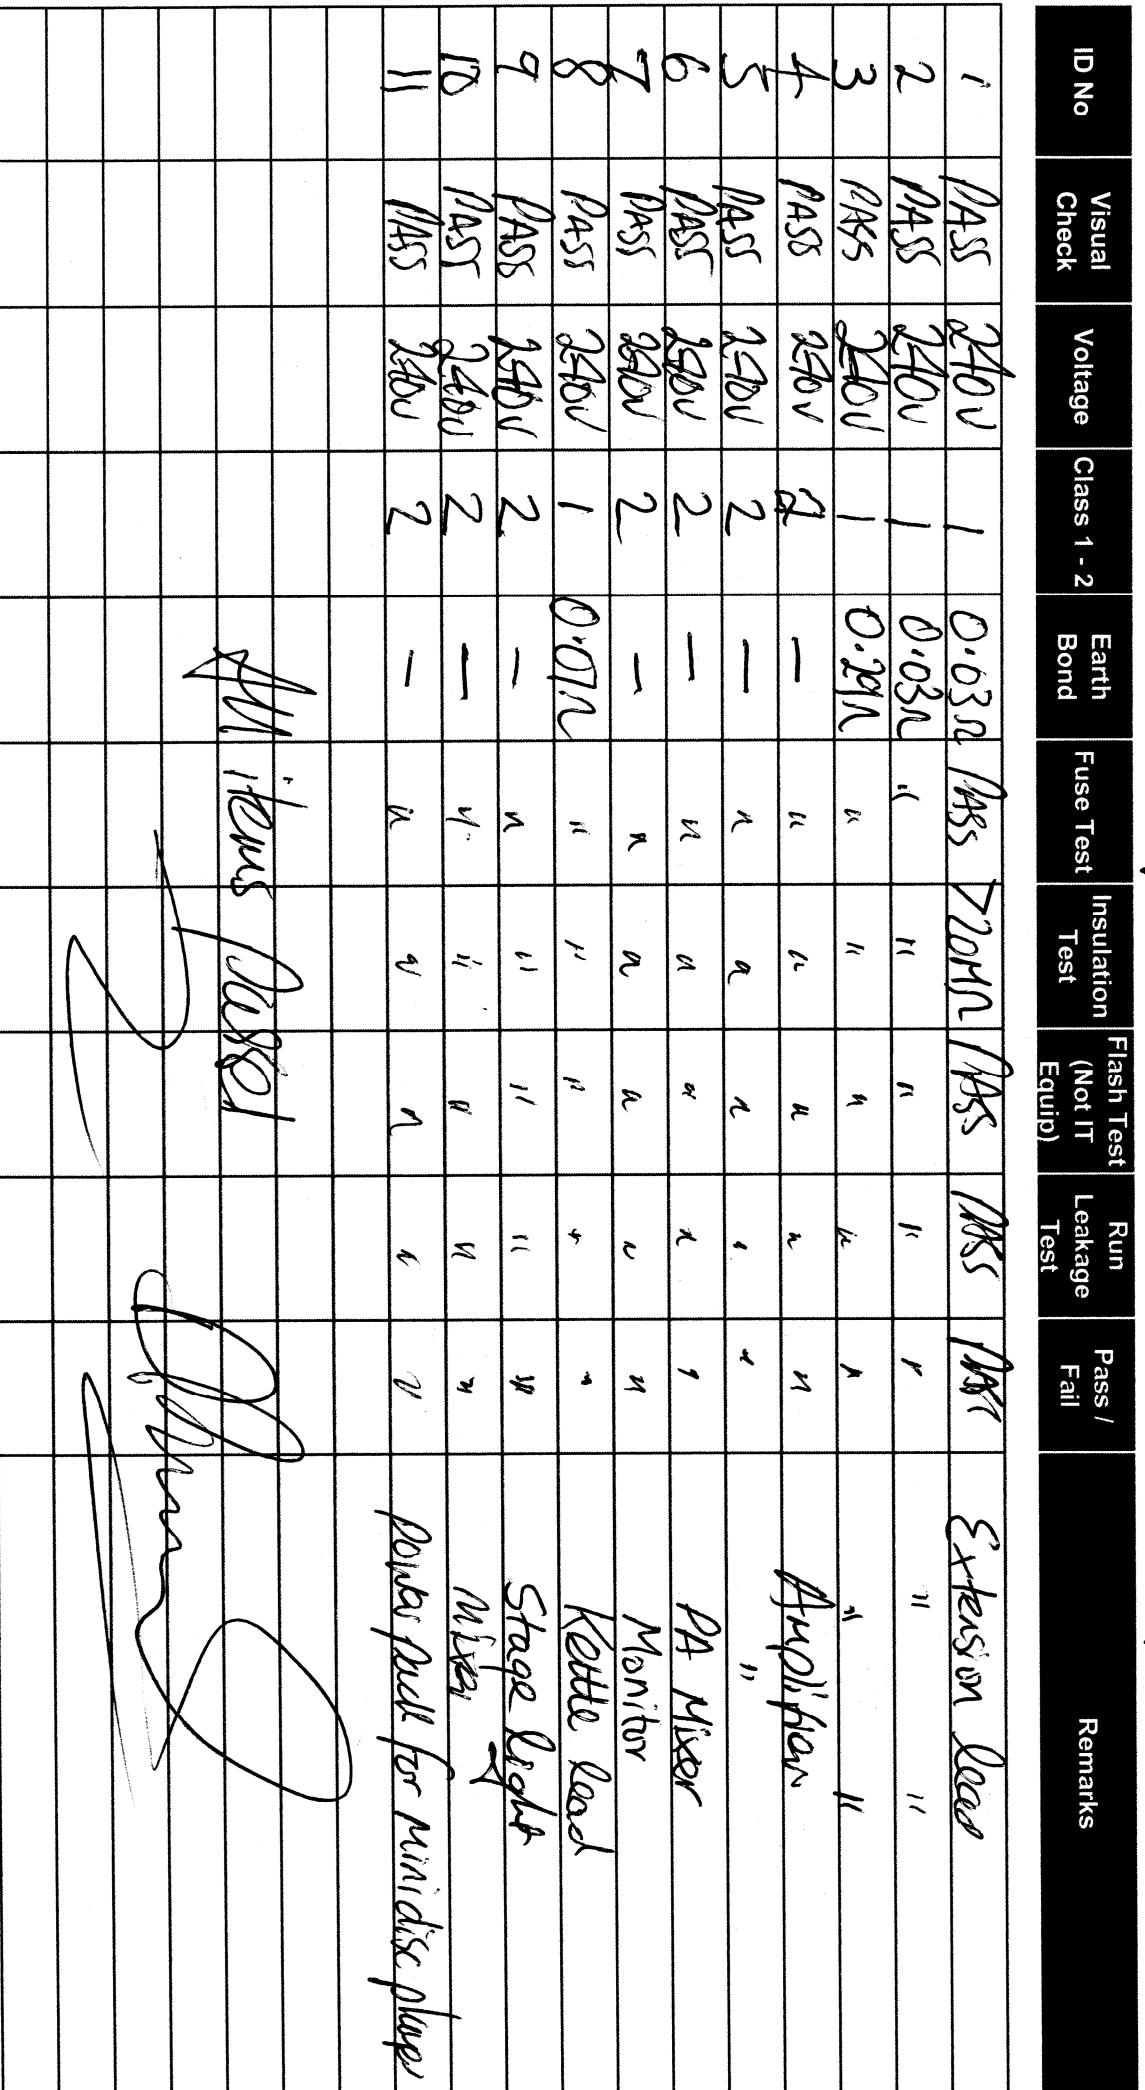 ID No Visual Check Voltage Class 1 - 2 Earth Bond Fuse Test Insulation Test Flash Test (Not IT Equip) Run Leakage Test Pass / Fail Remarks
1 PASS 240V 1 0.03Ω PASS >20MΩ PASS PASS PASS Extension lead
2 PASS 240V 1 0.03Ω " " " " " " "
3 PASS 240V 1 0.29Ω " " " " " " "
4 PASS 240V 2 — " " " " " Amplifier
5 PASS 240V 2 — " " " " " "
6 PASS 240V 2 — " " " " " PA Mixer
7 PASS 240V 2 — " " " " " Monitor
8 PASS 240V 1 0.07Ω " " " " " Kettle lead
9 PASS 240V 2 — " " " " " Stage light
10 PASS 240V 2 — " " " " " Mixer
11 PASS 240V 2 — " " " " " Power pack for minidisc player
All items passed